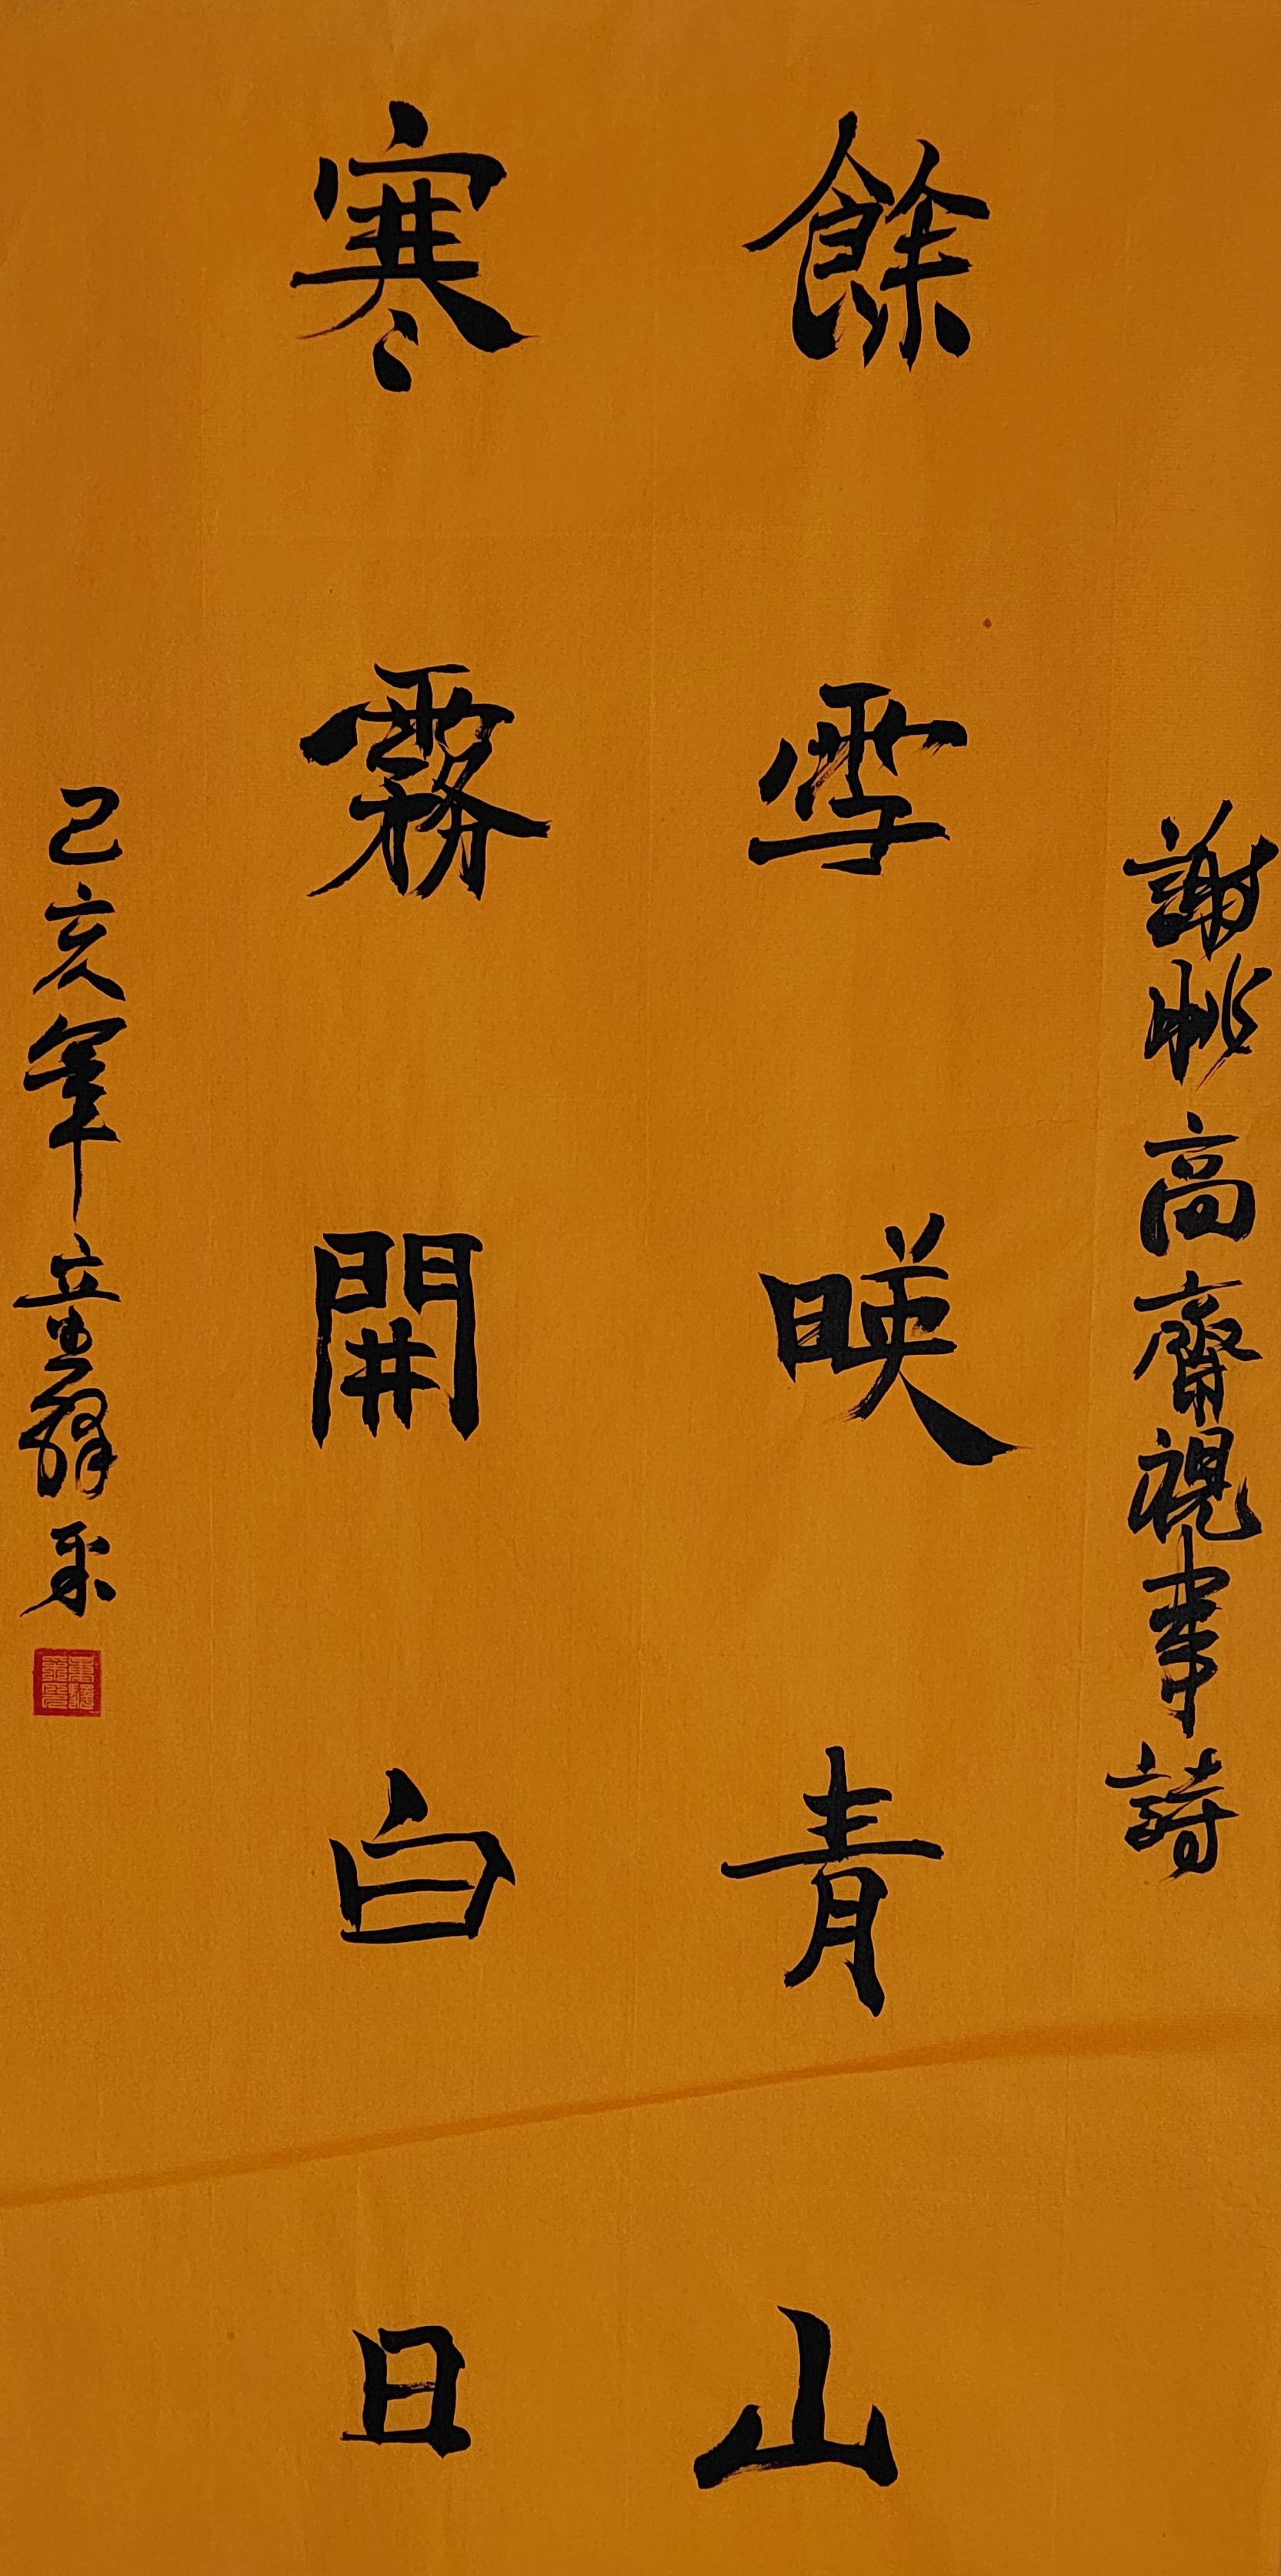 謝朓高齋視事詩
餘雪暎青山
寒霧開白日
己亥年